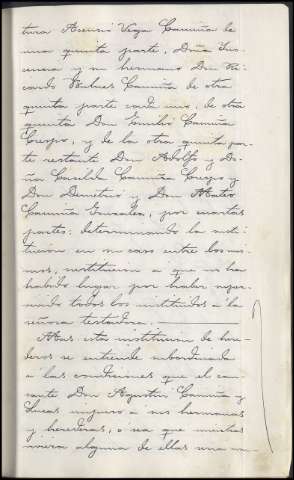 tura Asensio Vega Camuña de
una quinta parte, Dña
y su hermano Don Ri-
cardo Camuña de otra
quinta parte cada uno, de otra
quinta Don Emilio Camuña
Crespo, y de la otra quinta par-
te restante Don Adolfo y Do-
ña Casilda Camuña Crespo y
Don Demetrio y Don Mateo
Camuña Gonzalez, por cuartas
partes: determinando la susti-
tución en su caso entre los mis-
mos, sustitución a que no ha
habido lugar por haber sobre-
vivido todos los instituidos a la
señora testadora.
Mas esta institución de here-
deros se entiende subordinada
a las condiciones que el cau-
sante Don Agustin Camuña y
Lucas impuso a sus hermanas
y herederas, o sea que mientras
viviera alguna de ellas una